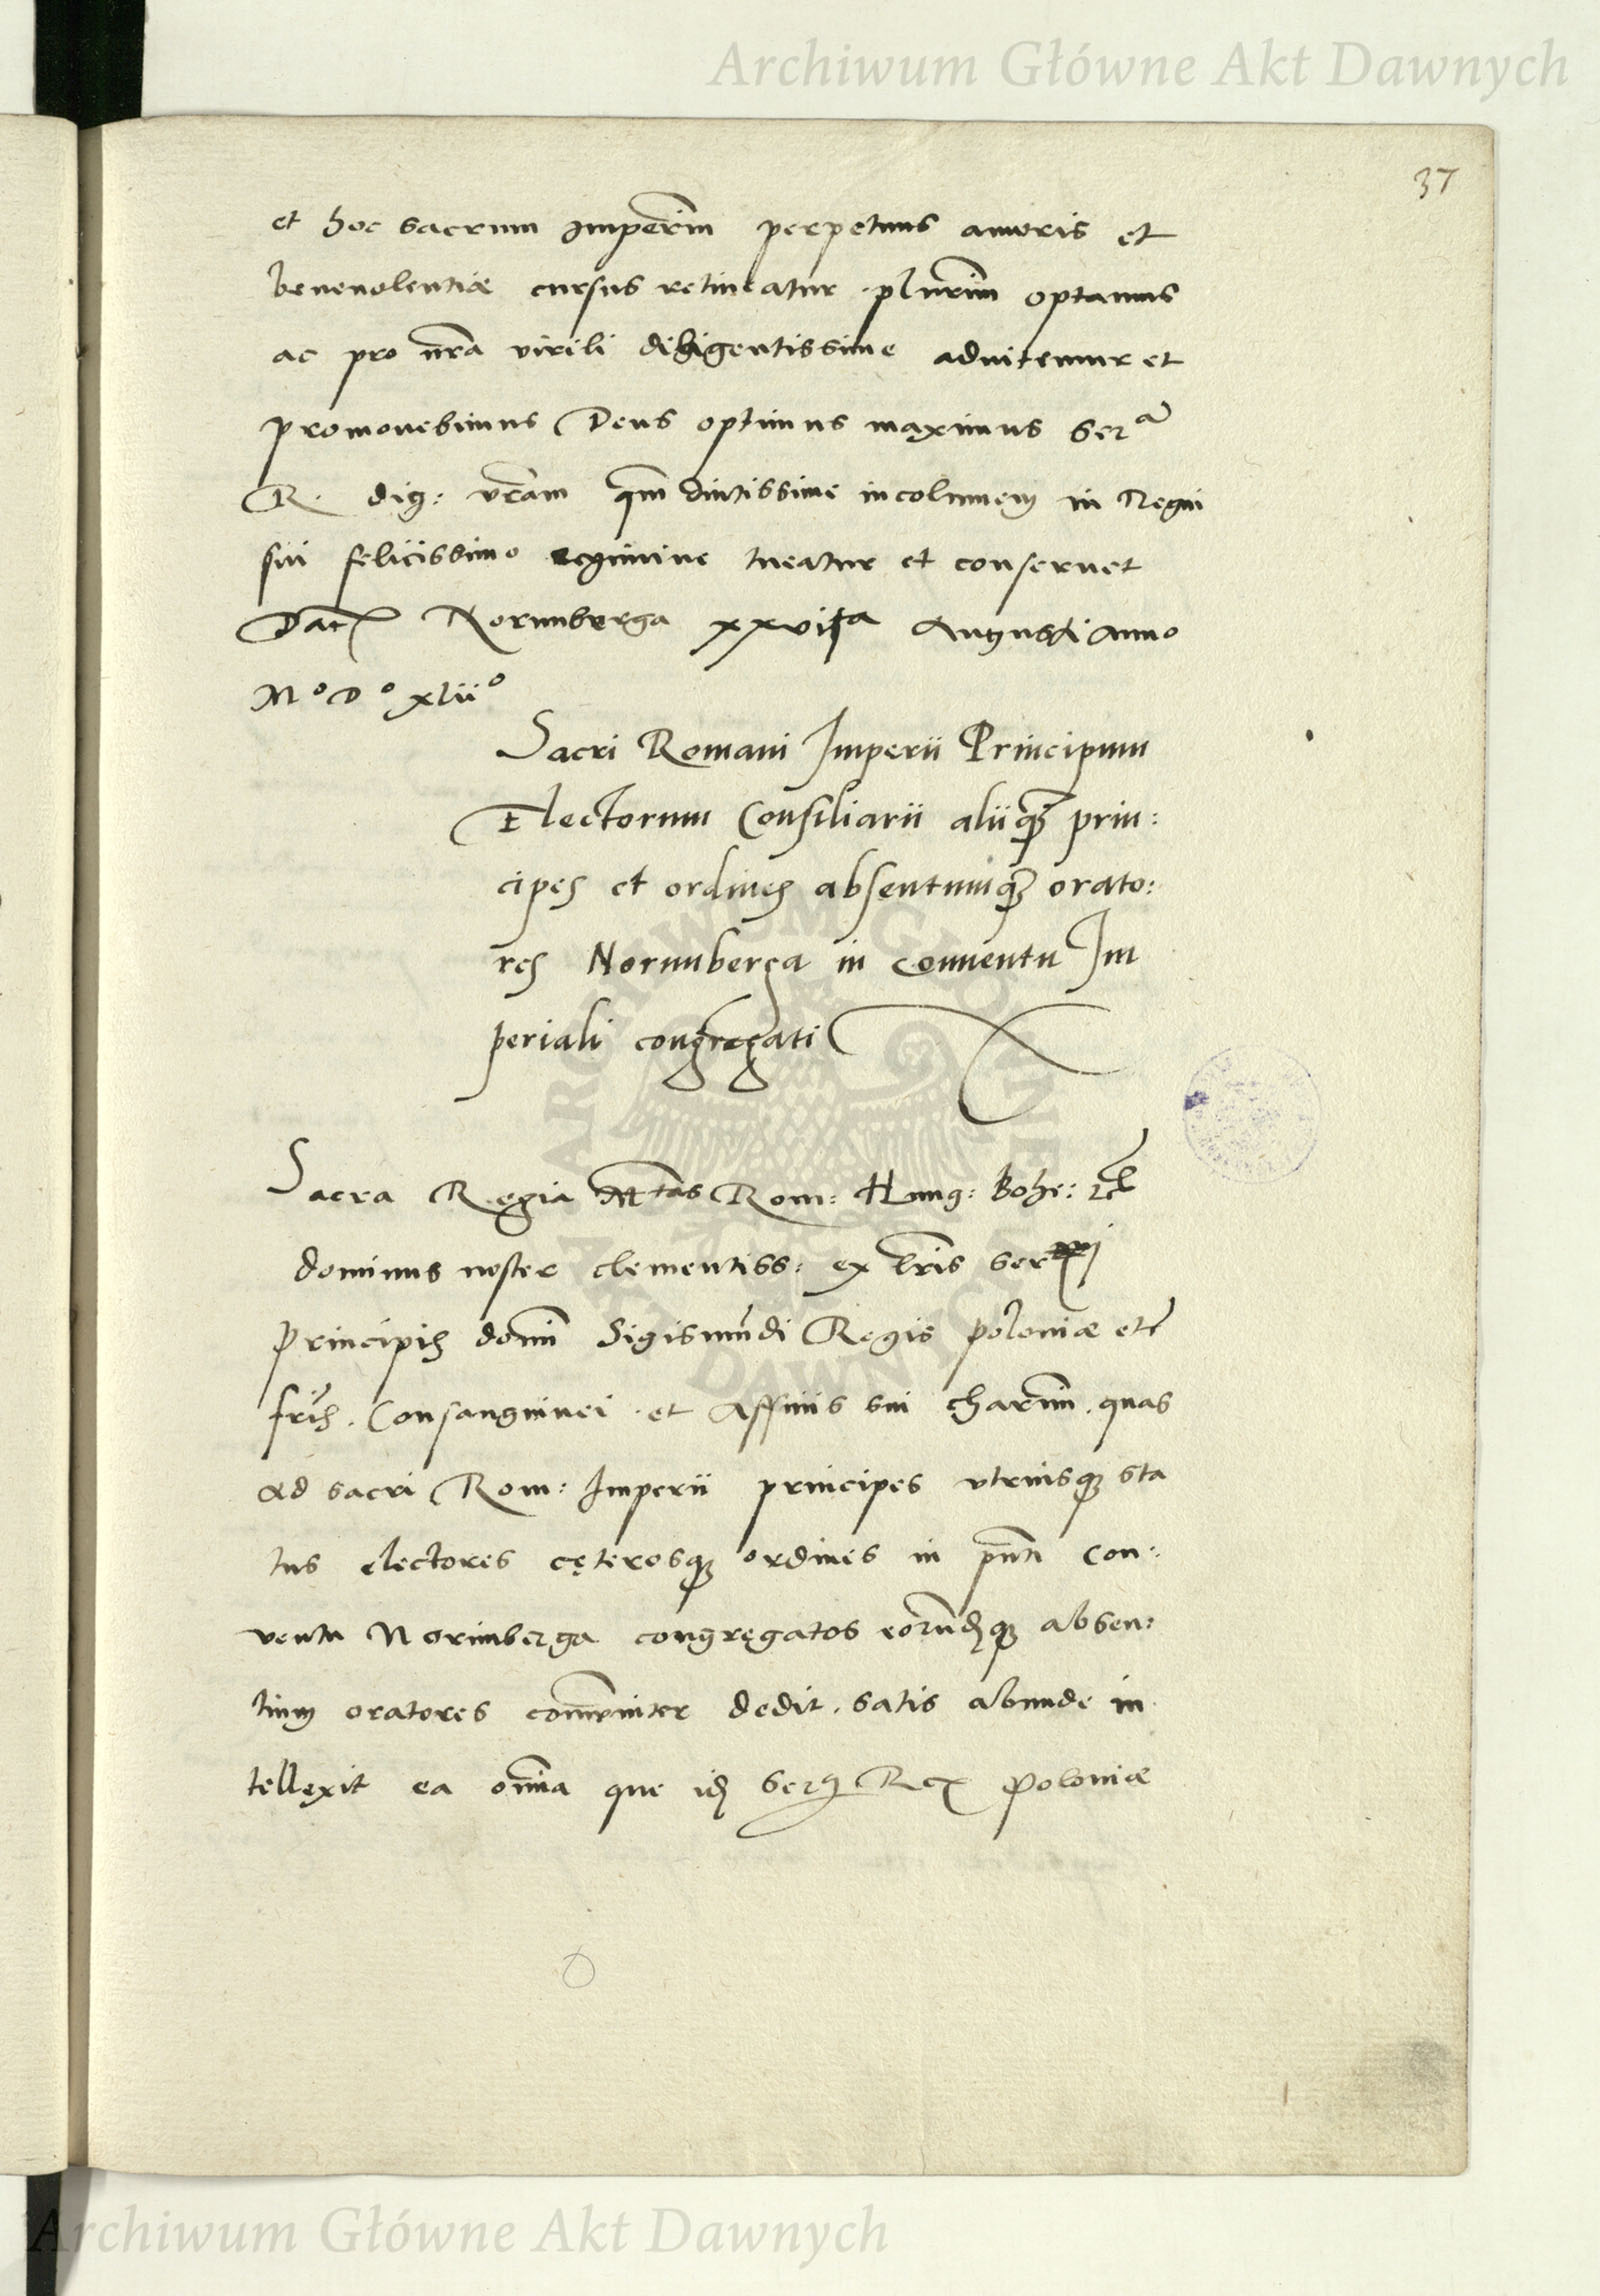 Archiwum Główne Akt Dawnych
37
et hoc sacrum Imperiũ perpetuus amoris et
benevolentiæ cursus retineatur plurimũ optamus
ac pro nr̃a virili diligentissime adnitemur et
promovebimus Deus optimus maximus Ser^a
R. dig: vr̃am qm̃ diutissime incolumem in Regni
sui felicissimo regimine tueatur et conservet
Dat Norumberga xxvi^ta Augusti Anno
M° D° xlii°
Sacri Romani Imperii Principum
Electorum Consiliarii aliiq̃ prin:
cipes et ordines absentiumq̃ orato:
res Norumberga in Conventu Im
periali congregati
Sacra Regia M^tas Rom: Hung: Bohe: etc̃
dominus noster clementiss: ex lr̃is Ser^mi
Principis domĩ Sigismũdi Regis poloniæ etc̃
fr̃is. Consanguinei et Affinis sui charimĩ. quas
ad sacri Rom: Imperii principes utriusq̃ sta
tus electores cęterosq̃ ordines in pñti con:
ventu Norimberga congregatos eorũdẽq̃ absen:
tium oratores com̃uniter dedit. satis abunde in
tellexit ea om̃ia que idẽ Ser^9 Rex Poloniæ
ARCHIWUM GŁÓWNE AKT DAWNYCH
Archiwum Główne Akt Dawnych